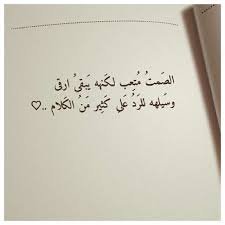 الصَمتُ مُتعِب لكَنهه يَبقىُ ارقى
وسَيلهه للرَدُ عَلى كَثيِر مَنُ الكَلام ..♡